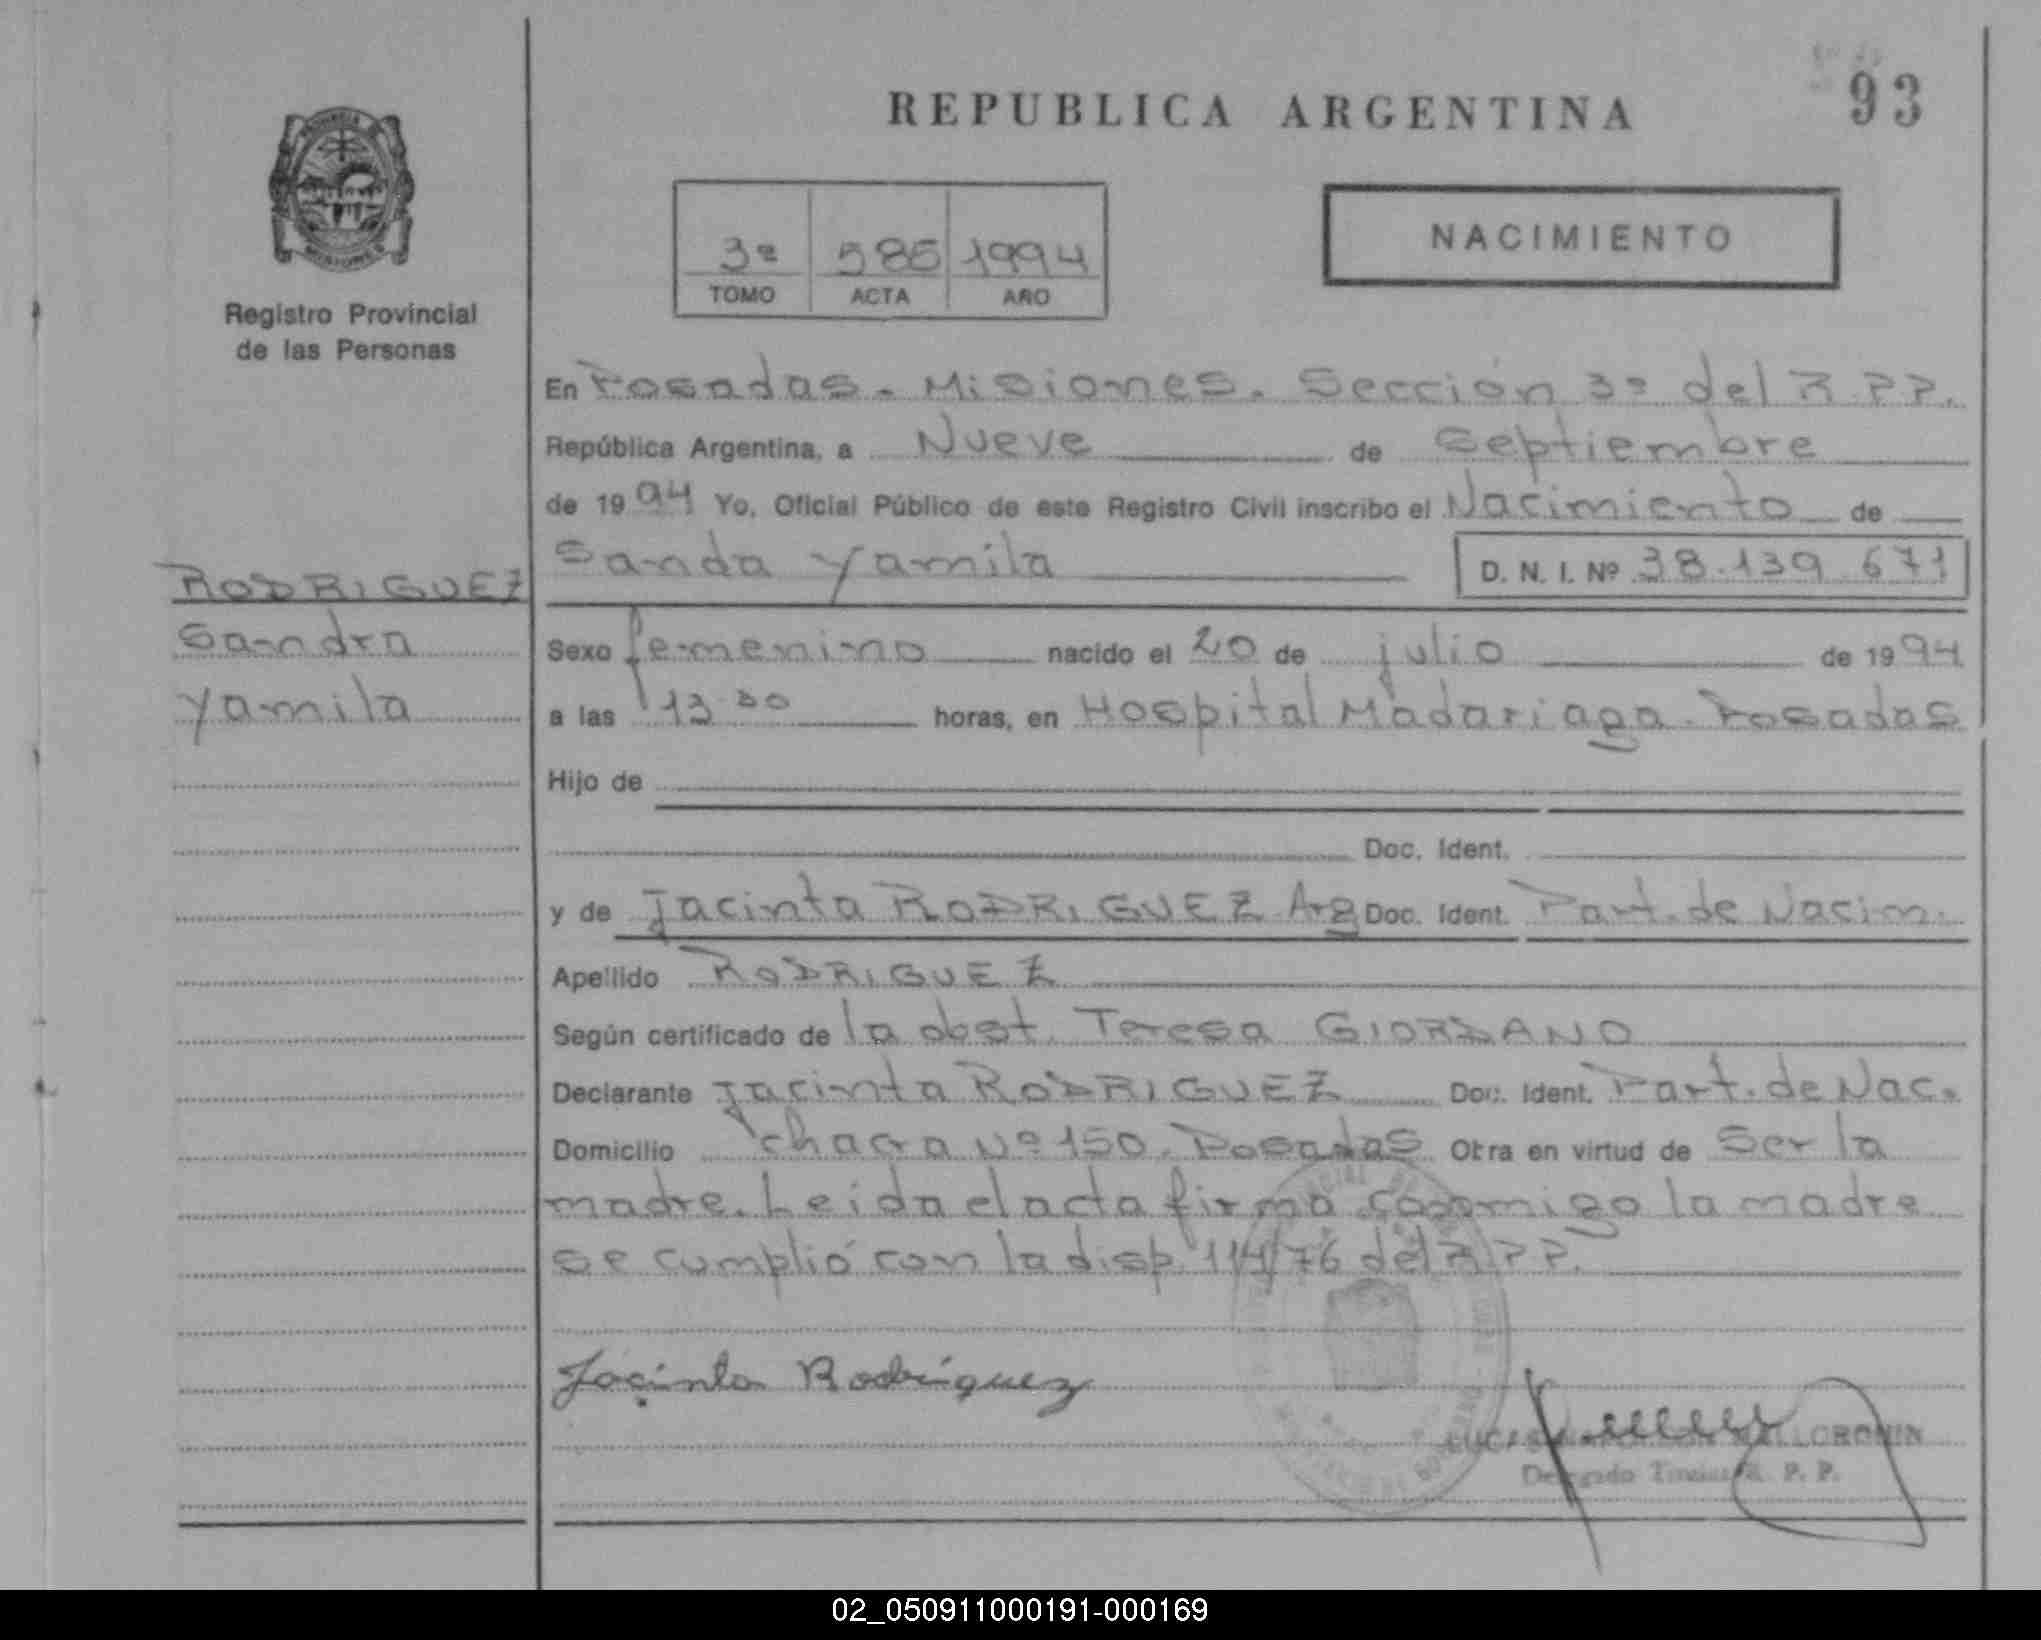 REPUBLICA ARGENTINA
93
3ª 585 1994
TOMO ACTA AÑO
NACIMIENTO
Registro Provincial
de las Personas
RODRIGUEZ
Sandra
Yamila
En Posadas. Misiones. Sección 3ª del R.P.P.
República Argentina, a Nueve de Septiembre
de 1994 Yo, Oficial Público de este Registro Civil inscribo el Nacimiento de
Sanda Yamila D. N. I. Nº 38.139.671
Sexo femenino nacido el 20 de julio de 1994
a las 13.30 horas, en Hospital Madariaga. Posadas
Hijo de
Doc. Ident.
y de Jacinta RODRIGUEZ Arg Doc. Ident. Part. de Nacim.
Apellido RODRIGUEZ
Según certificado de la obst. Teresa GIORDANO
Declarante Jacinta RODRIGUEZ Doc. Ident. Part. de Nac.
Domicilio chacra Nº 150. Posadas Obra en virtud de Ser la
madre. Leida el acta firma conmigo la madre
se cumplió con la disp. 114/76 del R.P.P.
Jacinta Rodríguez
LUCAS
Delegado Titular R. P. P.
02_050911000191-000169